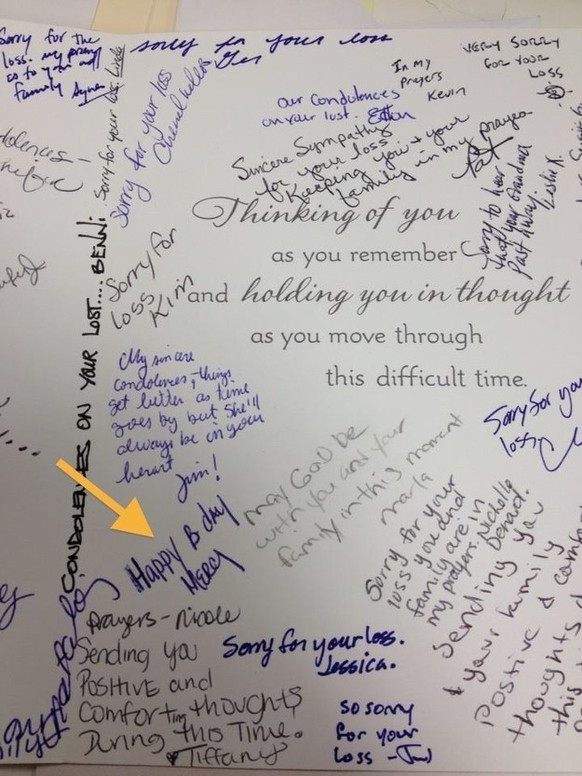 Sorry for the
loss. my prayers
go to you and
family
Sorry for your loss. Linda
sorry for your loss
In my
prayers
Kevin
VERY SORRY
FOR YOUR
LOSS
Sorry for your loss
our Condolences
on your lost.
Sincere Sympathy
for your loss
Keeping you & your
family in my prayer
Pat
Sorry to hear
that your Grandma
Past Away
Leslie K.
Thinking of you
as you remember
and holding you in thought
as you move through
this difficult time.
CONDOLENCES ON YOUR LOST.... BENNi
Sorry for
loss
Kim
My sincere
condolences, things
get better as time
goes by but she'll
always be in your
heart
Jim!
Sorry for your
loss.
May God be
with you and your
family in this moment
Marla
Happy B day
Mercy
Sorry for your
loss you and
family are in
my prayers. Nichelle
Sending you
& your family
positive &
thoughts
this
Prayers - Nicole
Sending you
POSITIVE and
Comforting thoughts
During this Time.
Tiffany
Sorry for your loss.
Jessica.
so sorry
for your
loss